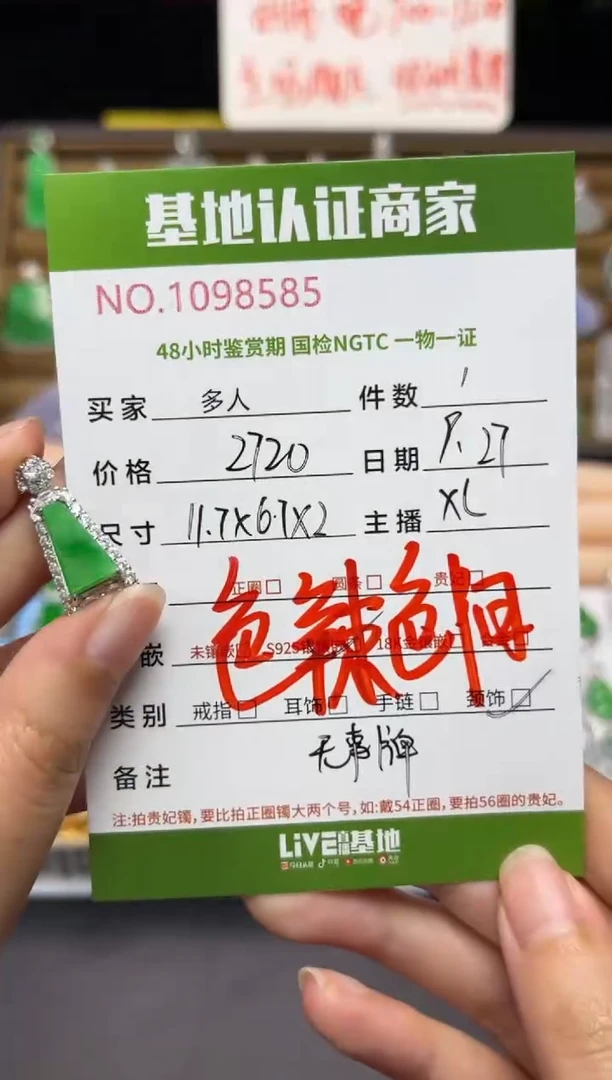 基地认证商家
NO.1098585
48小时鉴赏期 国检NGTC 一物一证
买家 多人 件数 1
价格 2720 日期 8.27
尺寸 11.7X6.7X2 主播 XL
正圈 圆条 贵妃
色辣色阳
嵌 未镶嵌 S925银镶嵌 18K金镶嵌
类别 戒指 耳饰 手链 颈饰
备注 无事牌
注:拍贵妃镯,要比拍正圈镯大两个号,如:戴54正圈,要拍56圈的贵妃。
LiVE直播基地